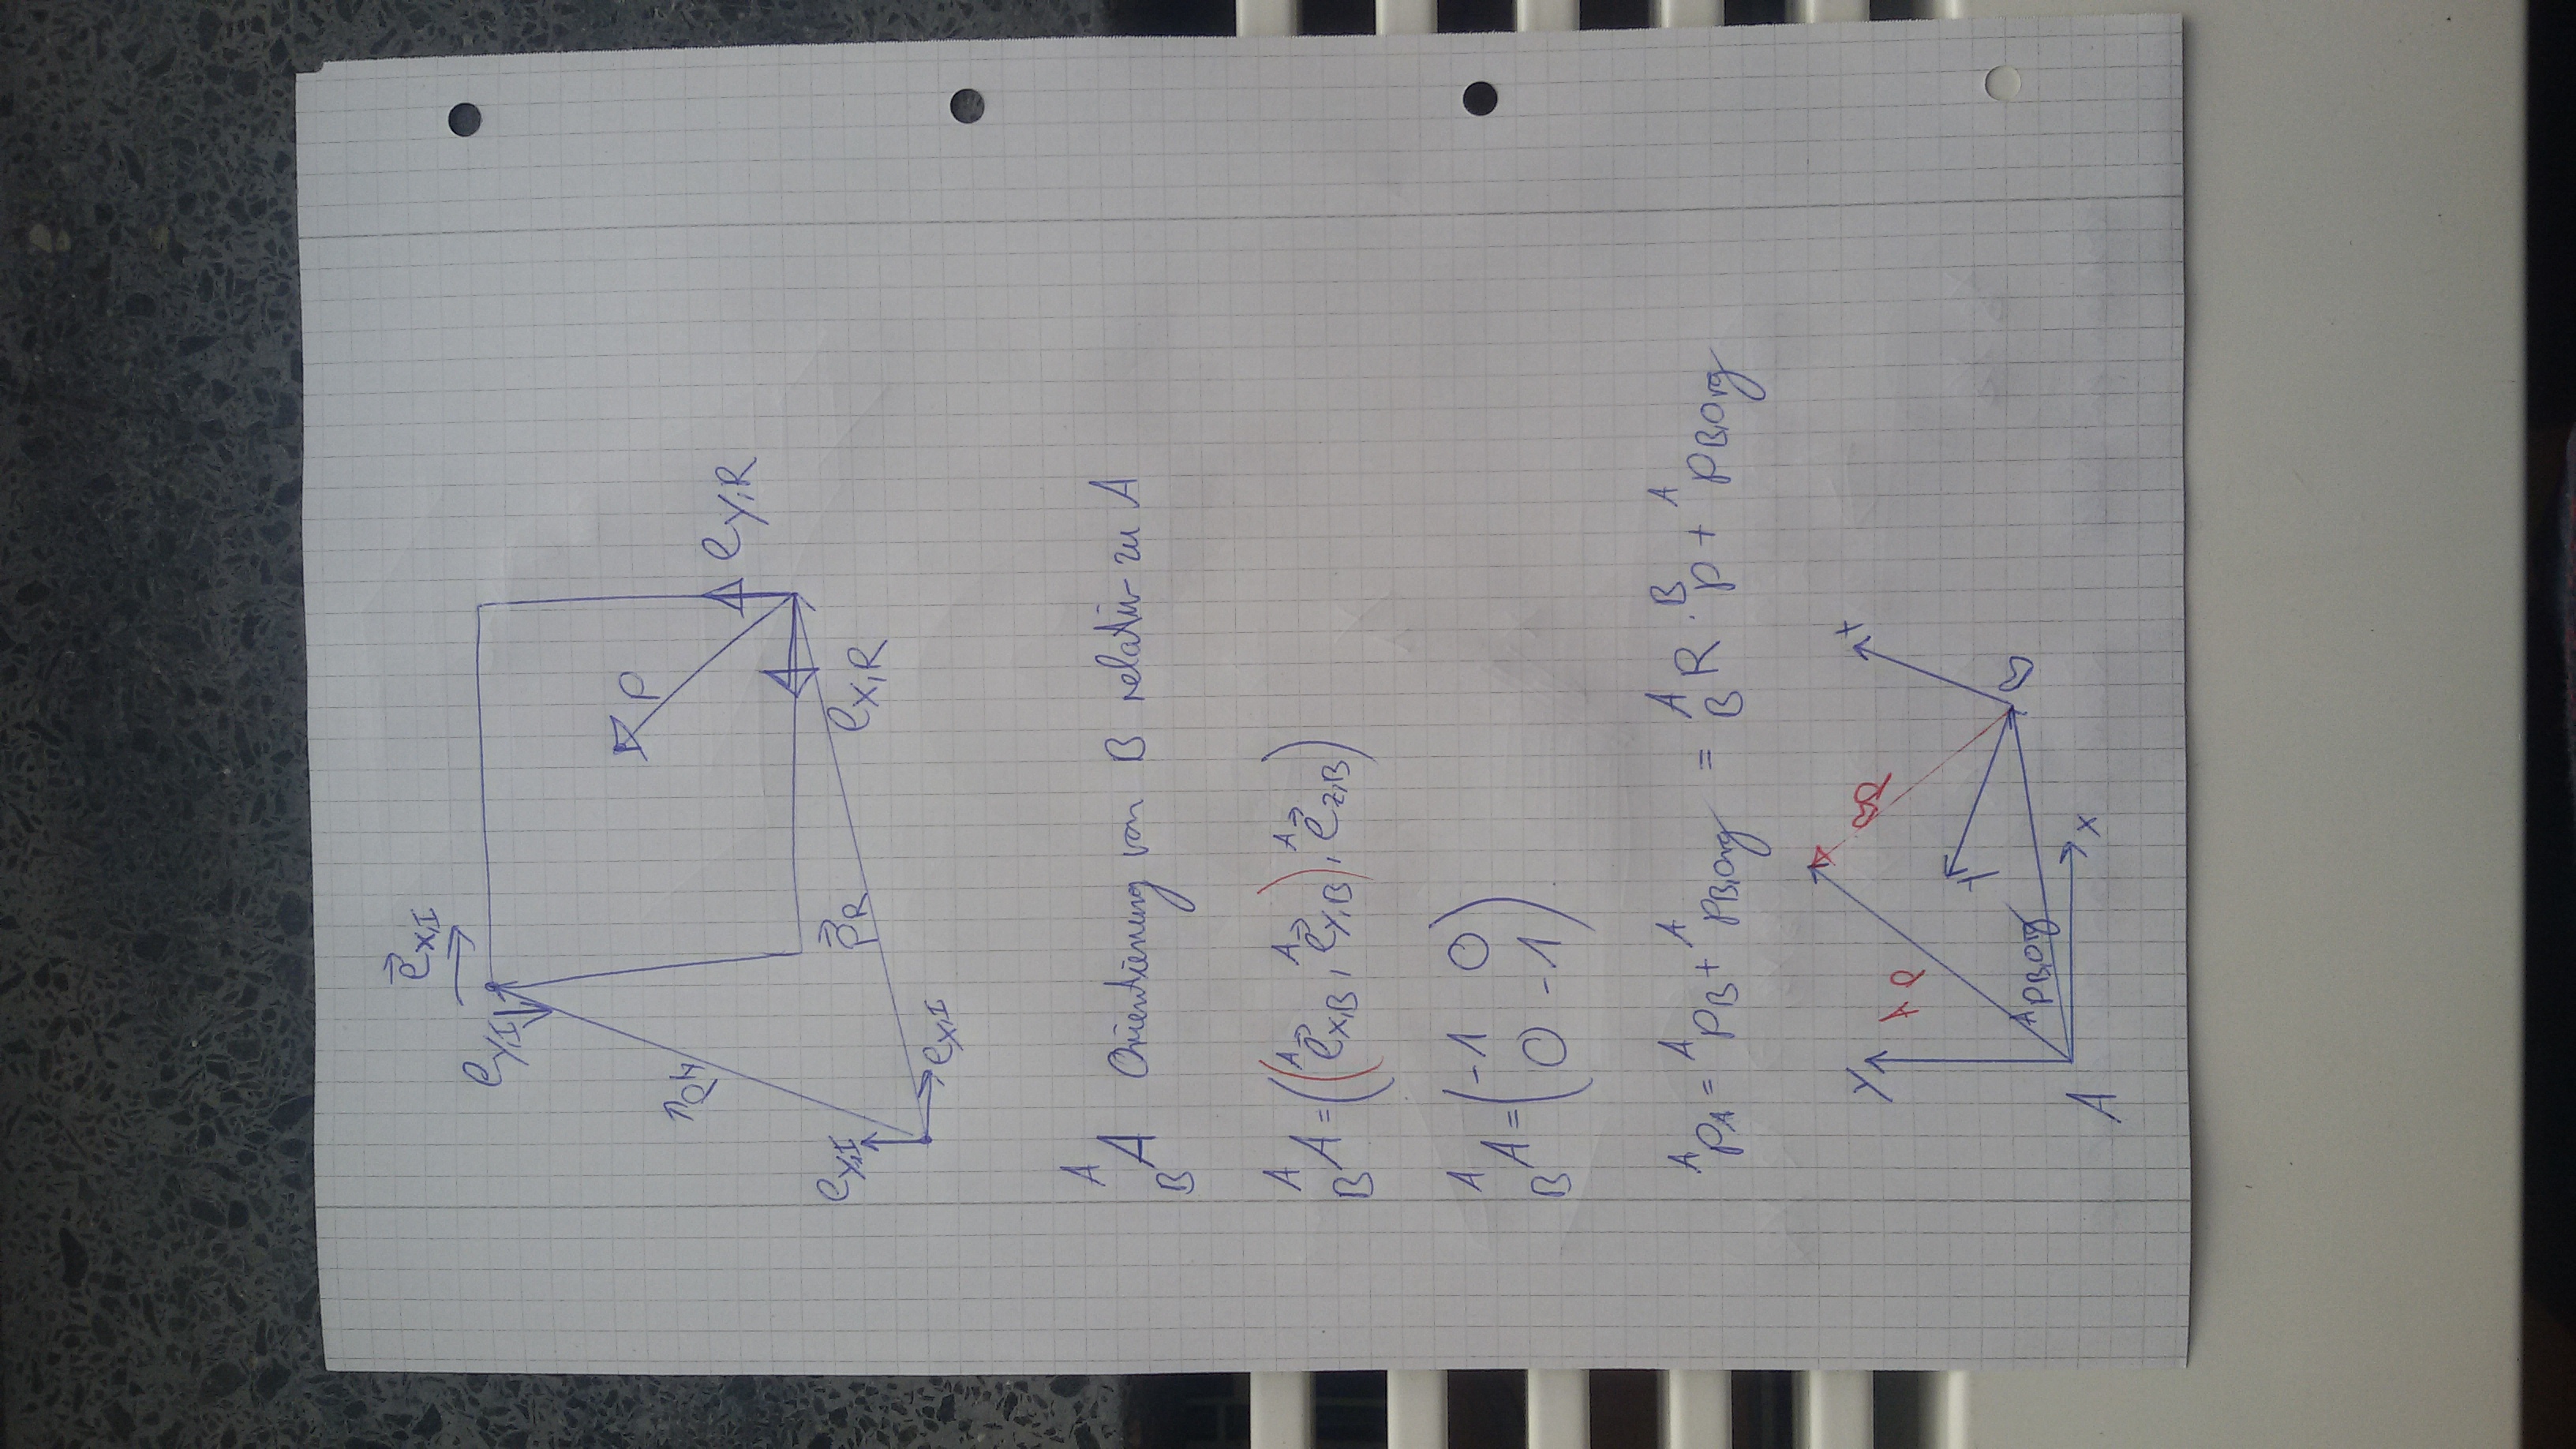 e⃗x,I
ey,I
P
ey,R
ex,R
p⃗R
ey,I
ex,I
ᴬ_B A Orientierung von B relativ zu A
ᴬ_B A = ((ᴬe⃗x,B, ᴬe⃗y,B), ᴬe⃗z,B)
ᴬ_B A = (-1 0
0 -1)
ᴬpA = ᴬpB + ᴬpB,Org = ᴬ_B R · ᴮp + ᴬpB,Org
y
ᴬP
ᴮP
ᴬPB,Org
B
x
A